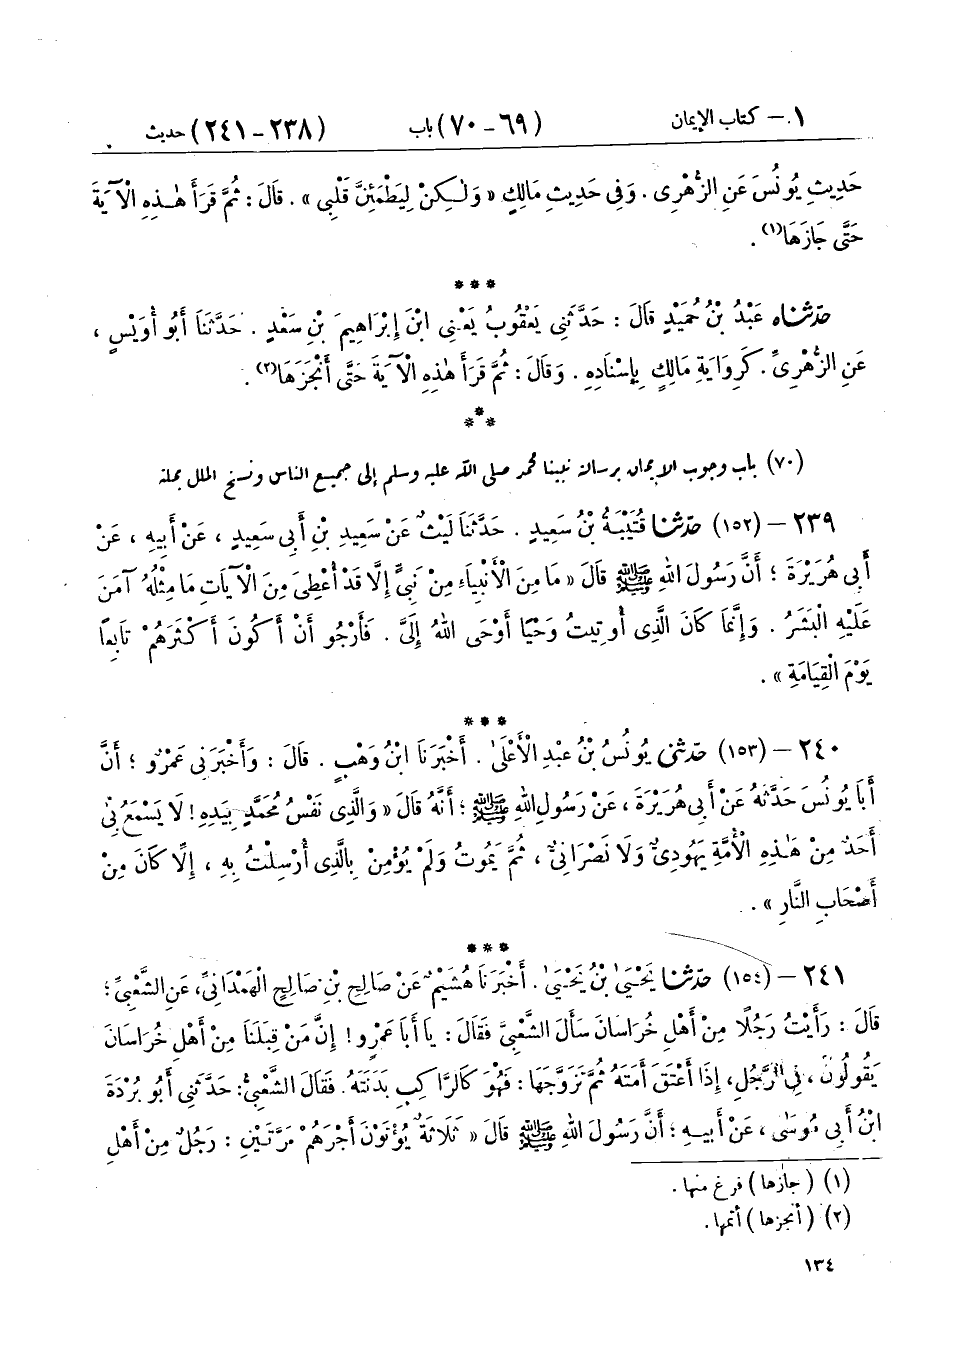 ١ – كتاب الإيمان (٦٩ – ٧٠) باب (٢٣٨ – ٢٤١) حديث
حَدِيثِ يُونُسَ عَنِ الزُّهْرِى . وَفِى حَدِيثِ مَالِكٍ « وَلٰكِنْ لِيَطْمَئِنَّ قَلْبِى » . قَالَ : ثُمَّ قَرَأَ هٰذِهِ الْآيَةَ
حَتَّى جَازَهَا(١) .
***
حدّثناه عَبْدُ بْنُ حُمَيْدٍ قَالَ : حَدَّثَنِى يَعْقُوبُ يَعْنِى ابْنَ إِبْرَاهِيمَ بْنِ سَعْدٍ . حَدَّثَنَا أَبُو أُوَيْسٍ ،
عَنِ الزُّهْرِىِّ . كَرِوَايَةِ مَالِكٍ بِإِسْنَادِهِ . وَقَالَ : ثُمَّ قَرَأَ هٰذِهِ الْآيَةَ حَتَّى أَنْجَزَهَا(٢) .
***
(٧٠) باب وجوب الإيمان برسالة نبينا محمد صلى الله عليه وسلم إلى جميع الناس ونسخ الملل بملته
٢٣٩ – (١٥٢) حدّثنا قُتَيْبَةُ بْنُ سَعِيدٍ . حَدَّثَنَا لَيْثٌ عَنْ سَعِيدِ بْنِ أَبِى سَعِيدٍ ، عَنْ أَبِيهِ ، عَنْ
أَبِى هُرَيْرَةَ ؛ أَنَّ رَسُولَ اللهِ ﷺ قَالَ « مَا مِنَ الْأَنْبِيَاءِ مِنْ نَبِىٍّ إِلَّا قَدْ أُعْطِىَ مِنَ الْآيَاتِ مَا مِثْلُهُ آمَنَ
عَلَيْهِ الْبَشَرُ . وَإِنَّمَا كَانَ الَّذِى أُوتِيتُ وَحْيًا أَوْحَى اللهُ إِلَىَّ . فَأَرْجُو أَنْ أَكُونَ أَكْثَرَهُمْ تَابِعًا
يَوْمَ الْقِيَامَةِ » .
***
٢٤٠ – (١٥٣) حدّثنى يُونُسُ بْنُ عَبْدِ الْأَعْلَىٰ . أَخْبَرَنَا ابْنُ وَهْبٍ . قَالَ : وَأَخْبَرَنِى عَمْرٌو ؛ أَنَّ
أَبَا يُونُسَ حَدَّثَهُ عَنْ أَبِى هُرَيْرَةَ ، عَنْ رَسُولِ اللهِ ﷺ ؛ أَنَّهُ قَالَ « وَالَّذِى نَفْسُ مُحَمَّدٍ بِيَدِهِ ! لَا يَسْمَعُ بِى
أَحَدٌ مِنْ هٰذِهِ الْأُمَّةِ يَهُودِىٌّ وَلَا نَصْرَانِىٌّ ، ثُمَّ يَمُوتُ وَلَمْ يُؤْمِنْ بِالَّذِى أُرْسِلْتُ بِهِ ، إِلَّا كَانَ مِنْ
أَصْحَابِ النَّارِ » .
***
٢٤١ – (١٥٤) حدّثنا يَحْيَىٰ بْنُ يَحْيَىٰ . أَخْبَرَنَا هُشَيْمٌ عَنْ صَالِحِ بْنِ صَالِحٍ الْهَمْدَانِىِّ، عَنِ الشَّعْبِىِّ ؛
قَالَ : رَأَيْتُ رَجُلًا مِنْ أَهْلِ خُرَاسَانَ سَأَلَ الشَّعْبِىَّ فَقَالَ : يَا أَبَا عَمْرٍو ! إِنَّ مَنْ قِبَلَنَا مِنْ أَهْلِ خُرَاسَانَ
يَقُولُونَ ، فِى الرَّجُلِ، إِذَا أَعْتَقَ أَمَتَهُ ثُمَّ تَزَوَّجَهَا : فَهُوَ كَالرَّاكِبِ بَدَنَتَهُ. فَقَالَ الشَّعْبِىُّ: حَدَّثَنِى أَبُو بُرْدَةَ
ابْنُ أَبِى مُوسَىٰ ، عَنْ أَبِيهِ ؛ أَنَّ رَسُولَ اللهِ ﷺ قَالَ « ثَلَاثَةٌ يُؤْتَوْنَ أَجْرَهُمْ مَرَّتَيْنِ : رَجُلٌ مِنْ أَهْلِ
(١) ( جازها ) فرغ منها .
(٢) ( أنجزها ) أتمها .
١٣٤